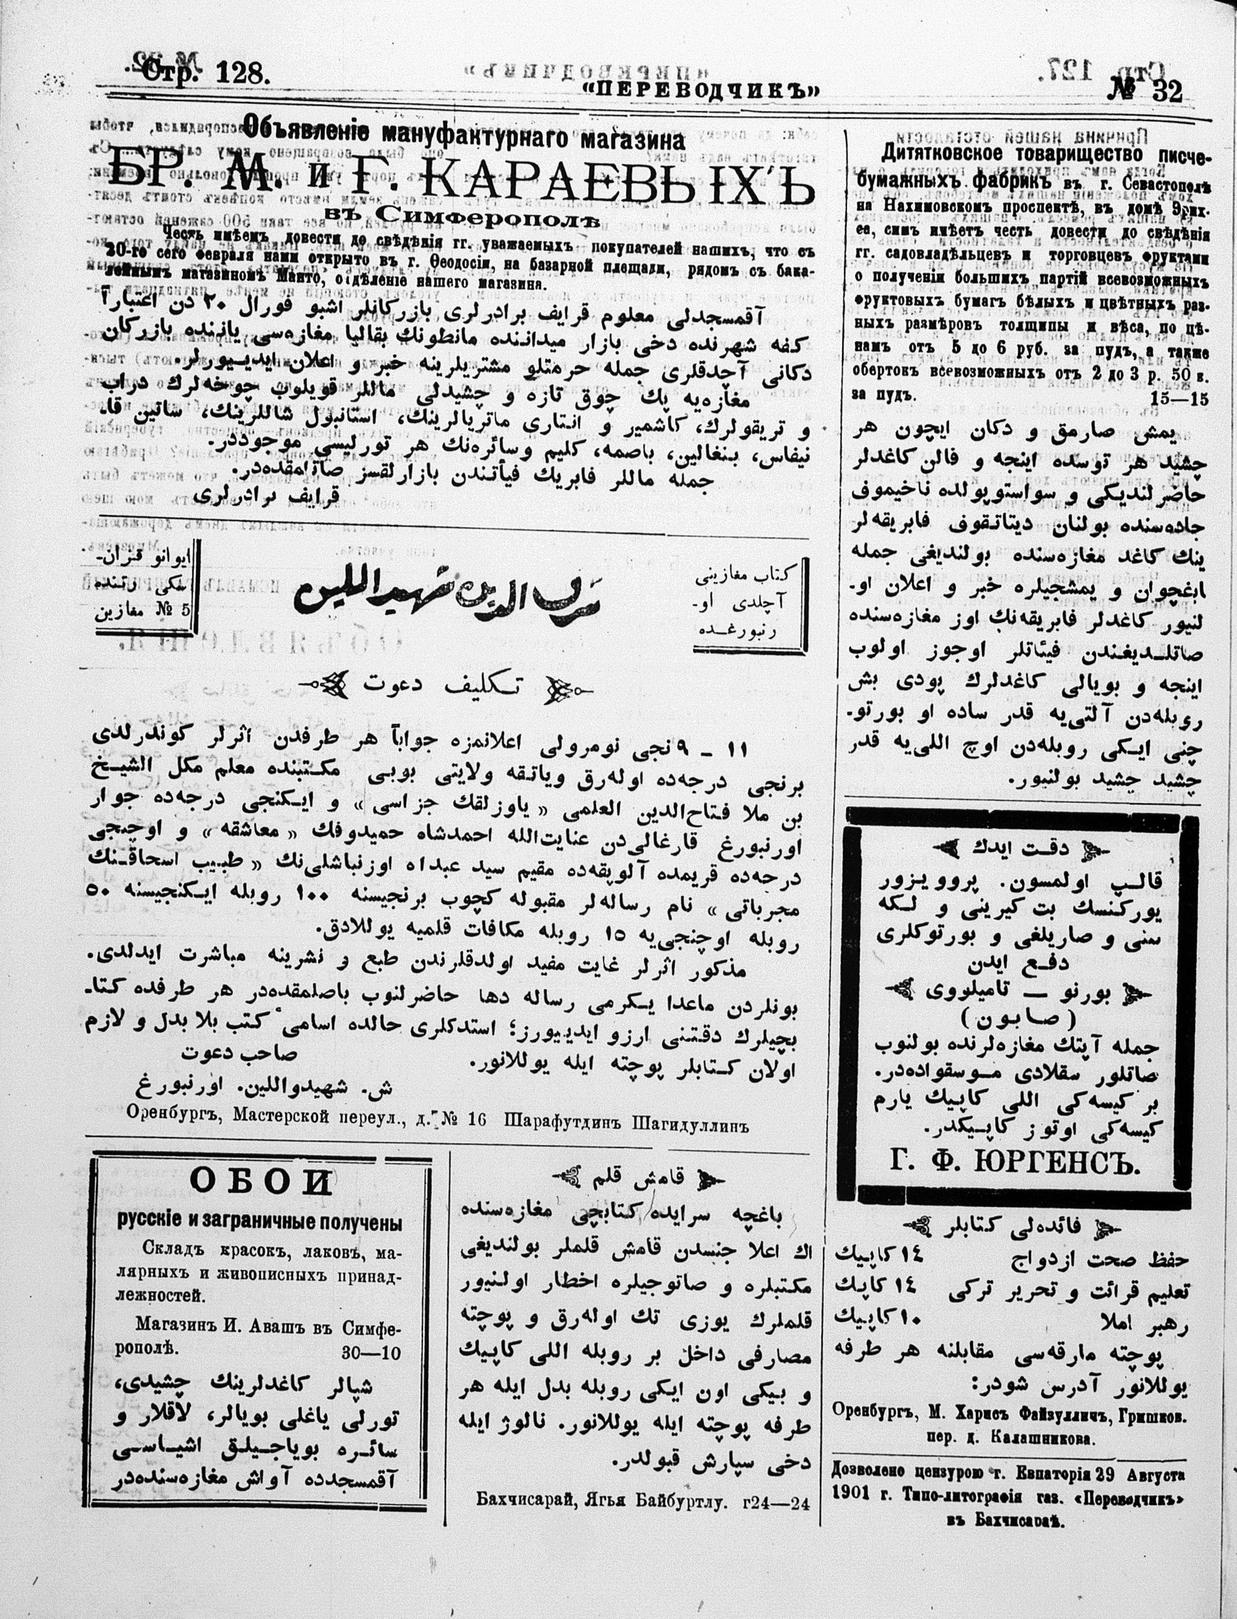 Стр. 128.
«ПЕРЕВОДЧИКЪ»
№ 32
Объявленіе мануфактурнаго магазина
БР. М. и Г. КАРАЕВЫХЪ
въ Симферополѣ
Честь имѣемъ довести до свѣдѣнія гг. уважаемыхъ покупателей нашихъ, что съ
20-го сего февраля нами открыто въ г. Ѳеодосіи, на базарной площади, рядомъ съ бака-
лейнымъ магазиномъ Манто, отдѣленіе нашего магазина.
آقمسجدلی معلوم قرایف برادرلری بازرکانلر اشبو فورال ٢٠ دن اعتباراً
کفه شهرنده دخی بازار میداننده مانطونڭ بقالیا مغازه‌سی یاننده بازرکان
دکانی آچدقلری جمله حرمتلو مشتریلرینه خبر و اعلان ایدییورلر.
مغازه‌یه پك چوق تازه و چشیدلی ماللر قویلوب چوخه‌لرك دراپ
و تریقولرك، کاشمیر و انتاری ماتریالرینك، استانبول شاللرینك، ساتین قا-
نیفاس، بنغالین، باصمه، کلیم وسائره‌نك هر تورلیسی موجوددر.
جمله ماللر فابریك فیأتندن بازارلقسز صاتلمقده‌در.
قرایف برادرلری
کتاب مغازینی
آچلدی او-
رنبورغده
شرف الدین شهیداللین
ایوانو قزان-
سکی رتنده
№ 5 مفازین
تکلیف دعوت
١١ – ٩ نجی نومرولی اعلانمزه جواباً هر طرفدن اثرلر کوندرلدی
برنجی درجه‌ده اوله‌رق ویاتقه ولایتی بوبی مکتبنده معلم مکل الشیخ
بن ملا فتاح‌الدین العلمی « یاوزلقك جزاسی » و ایکنجی درجه‌ده جوار
اورنبورغ قارغالی‌دن عنایت‌الله احمدشاه حمیدوفك « معاشقه » و اوچنجی
درجه‌ده قریمده آلوپقه‌ده مقیم سید عبداه اوزنباشلی‌نك « طبیب اسحاقنك
مجرباتی » نام رساله‌لر مقبوله کچوب برنجیسنه ١٠٠ روبله ایکنجیسنه ٥٠
روبله اوچنجی‌یه ١٥ روبله مکافات قلمیه یوللادق.
مذکور اثرلر غایت مفید اولدقلرندن طبع و نشرینه مباشرت ایدلدی.
بونلردن ماعدا یکرمی رساله دها حاضرلنوب باصلمقده‌در هر طرفده کتا-
بچیلرك دقتنی ارزو ایدییورز؛ استدکلری حالده اسامیٔ کتب بلا بدل و لازم
اولان کتابلر پوچته ایله یوللانور.
صاحب دعوت
ش. شهیدواللین. اورنبورغ
Оренбургъ, Мастерской переул., д. № 16 Шарафутдинъ Шагидуллинъ
ОБОИ
русскіе и заграничные получены
Складъ красокъ, лаковъ, ма-
лярныхъ и живописныхъ принад-
лежностей.
Магазинъ И. Авашъ въ Симфе-
рополѣ. 30—10
شپالر کاغدلرینك چشیدی،
تورلی یاغلی بویالر، لاقلار و
سائره بویاجیلق اشیاسی
آقمسجدده آواش مغازه‌سنده‌در
قامش قلم
باغچه سرایده کتابچی مغازه‌سنده
اك اعلا جنسدن قامش قلملر بولندیغی
مکتبلره و صاتوجیلره اخطار اولنیور
قلملرك یوزی تك اوله‌رق و پوچته
مصارفی داخل بر روبله اللی کاپیك
و بیکی اون ایکی روبله بدل ایله هر
طرفه پوچته ایله یوللانور. نالوژ ایله
دخی سپارش قبولدر.
Бахчисарай, Ягья Байбуртлу. г24—24
Дитятковское товарищество писче-
бумажныхъ фабрикъ въ г. Севастополѣ
на Нахимовскомъ проспектѣ, въ домѣ Эрих-
еа, симъ имѣетъ честь довести до свѣдѣнія
гг. садовладѣльцевъ и торговцевъ фруктами
о полученіи большихъ партій всевозможныхъ
фруктовыхъ бумагъ бѣлыхъ и цвѣтныхъ раз-
ныхъ размѣровъ толщины и вѣса, по цѣ-
намъ отъ 5 до 6 руб. за пудъ, а также
обертокъ всевозможныхъ отъ 2 до 3 р. 50 к.
за пудъ. 15—15
یمش صارمق و دکان ایچون هر
چشید هر توسده اینجه و قالن کاغدلر
حاضرلندیکی و سواستوپولده ناخیموف
جاده‌سنده بولنان دیتاتقوف فابریقه‌لر
ینك کاغد مغازه‌سنده بولندیغی جمله
باغچوان و یمشجیلره خبر و اعلان او-
لنیور کاغدلر فابریقه‌نك اوز مغازه‌سنده
صاتلدیغندن فیئاتلر اوجوز اولوب
اینجه و بویالی کاغدلرك پودی بش
روبله‌دن آلتی‌یه قدر ساده او بورتو-
چنی ایکی روبله‌دن اوچ اللی‌یه قدر
چشید چشید بولنیور.
دقت ایدك
قالپ اولمسون. پروویزور
یورکنسك بت کیرینی و لکه
سنی و صاریلغی و بورتوکلری
دفع ایدن
بورنو — تامیلووی
(صابون)
جمله آپتك مغازه‌لرنده بولنوب
صاتلور سقلادی موسقواده‌در.
بر کیسه‌کی اللی کاپیك یارم
کیسه‌کی اوتوز کاپیکدر.
Г. Ф. ЮРГЕНСЪ.
فائده‌لی کتابلر
حفظ صحت ازدواج ١٤ کاپیك
تعلیم قرائت و تحریر ترکی ١٤ کاپك
رهبر املا ١٠ کاپیك
پوچته مارقه‌سی مقابلنه هر طرفه
یوللانور آدرس شودر:
Оренбургъ, М. Харисъ Файзуллинъ, Гришков.
пер. д. Калашникова.
Дозволено цензурою г. Евпаторія 29 Августа
1901 г. Типо-литографія газ. «Переводчикъ»
въ Бахчисараѣ.